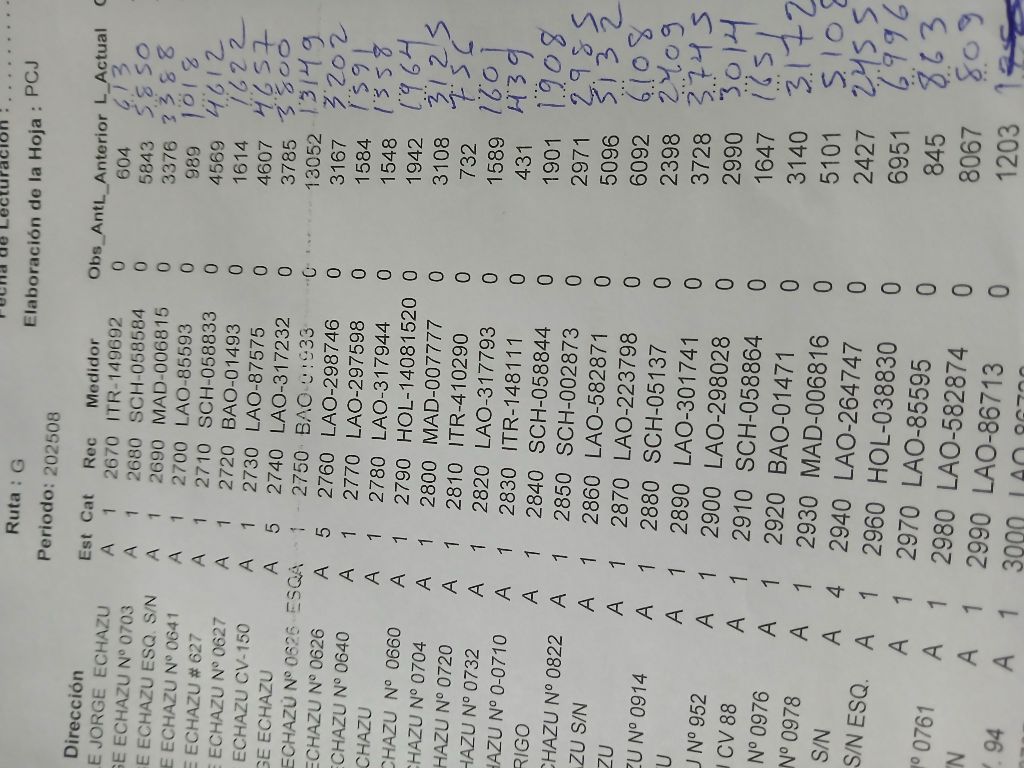 Fecha de Lecturación :
Ruta : G Elaboración de la Hoja : PCJ
Periodo: 202508
Dirección Est Cat Rec Medidor Obs_Ant L_Anterior L_Actual
E JORGE ECHAZU A 1 2670 ITR-149692 0 604 613
GE ECHAZU Nº 0703 A 1 2680 SCH-058584 0 5843 5850
GE ECHAZU ESQ. S/N A 1 2690 MAD-006815 0 3376 3388
SE ECHAZU Nº 0641 A 1 2700 LAO-85593 0 989 1018
E ECHAZU # 627 A 1 2710 SCH-058833 0 4569 4612
ECHAZU Nº 0627 A 1 2720 BAO-01493 0 1614 1622
ECHAZU CV-150 A 1 2730 LAO-87575 0 4607 4657
GE ECHAZU A 5 2740 LAO-317232 0 3785 3800
ECHAZU Nº 0626 ESQA 1 2750 BAO-01933 0 13052 13149
ECHAZU Nº 0626 A 5 2760 LAO-298746 0 3167 3202
ECHAZU Nº 0640 A 1 2770 LAO-297598 0 1584 1591
CHAZU A 1 2780 LAO-317944 0 1548 1558
CHAZU Nº 0660 A 1 2790 HOL-14081520 0 1942 1964
HAZU Nº 0704 A 1 2800 MAD-007777 0 3108 3125
HAZU Nº 0720 A 1 2810 ITR-410290 0 732 756
HAZU Nº 0732 A 1 2820 LAO-317793 0 1589 1601
HAZU Nº 0-0710 A 1 2830 ITR-148111 0 431 439
RIGO A 1 2840 SCH-058844 0 1901 1908
CHAZU Nº 0822 A 1 2850 SCH-002873 0 2971 2985
AZU S/N A 1 2860 LAO-582871 0 5096 5132
ZU A 1 2870 LAO-223798 0 6092 6108
ZU Nº 0914 A 1 2880 SCH-05137 0 2398 2409
U A 1 2890 LAO-301741 0 3728 3745
U Nº 952 A 1 2900 LAO-298028 0 2990 3014
CV 88 A 1 2910 SCH-058864 0 1647 1651
Nº 0976 A 1 2920 BAO-01471 0 3140 3172
Nº 0978 A 1 2930 MAD-006816 0 5101 5108
S/N A 4 2940 LAO-264747 0 2427 2455
S/N ESQ. A 1 2960 HOL-038830 0 6951 6996
A 1 2970 LAO-85595 0 845 863
Nº 0761 A 1 2980 LAO-582874 0 8067 809
/N A 1 2990 LAO-86713 0 1203
. 94 A 1 3000